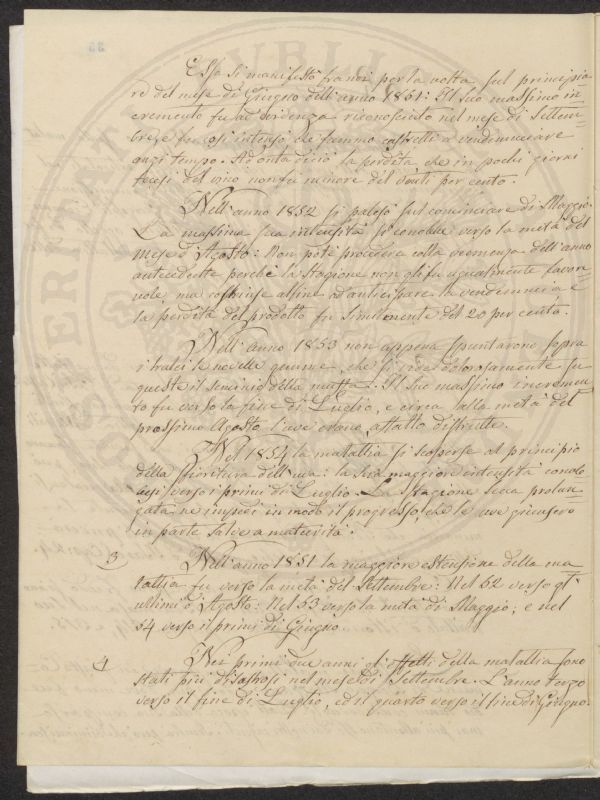 Essa si manifestò fra noi per la volta sul principia-
re del mese di Giugno dell'anno 1851: Il suo massimo in-
cremento fu ad evidenza riconosciuto nel mese di Settem-
bre, e fu così intenso che fummo costretti a vendemmiare
anzi tempo. Ad onta di ciò la perdita che in pochi giorni
fecesi del vino non fu minore del venti per cento.
Nell'anno 1852 si palesò sul cominciare di Maggio.
La massima sua intensità si conobbe verso la metà del
mese d'Agosto: Non potè procedere colla veemenza dell'anno
antecedente perchè la stagione non gli fu ugualmente favore-
vole, ma costrinse alfine ad anticipare la vendemmia e
la perdita del prodotto fu similmente del 20 per cento.
Nell'anno 1853 non appena spuntarono sopra
i tralci le novelle gemme, che si vide dolorosamente su
queste il seminio della muffa. Il suo massimo incremen-
to fu verso la fine di Luglio, e circa alla metà del
prossimo Agosto l'uve erano affatto distrutte.
Nel 1854 la malattia si scoperse al principio
della fioritura dell'uva: la sua maggiore intensità conob-
besi verso i primi di Luglio. La stagione secca prolun-
gata ne impedì in modo il progresso, che le uve giunsero
in parte salve a maturità.
3 Nell'anno 1851 la maggiore estensione della ma-
lattia fu verso la metà del Settembre: Nel 52 verso gl'
ultimi d'Agosto: Nel 53 verso la metà di Maggio; e nel
54 verso il primi di Giugno.
4 Nei primi due anni gl'effetti della malattia sono
stati più disastrosi nel mese di Settembre. L'anno terzo
verso il fine di Luglio, ed il quarto verso il fine di Giugno.